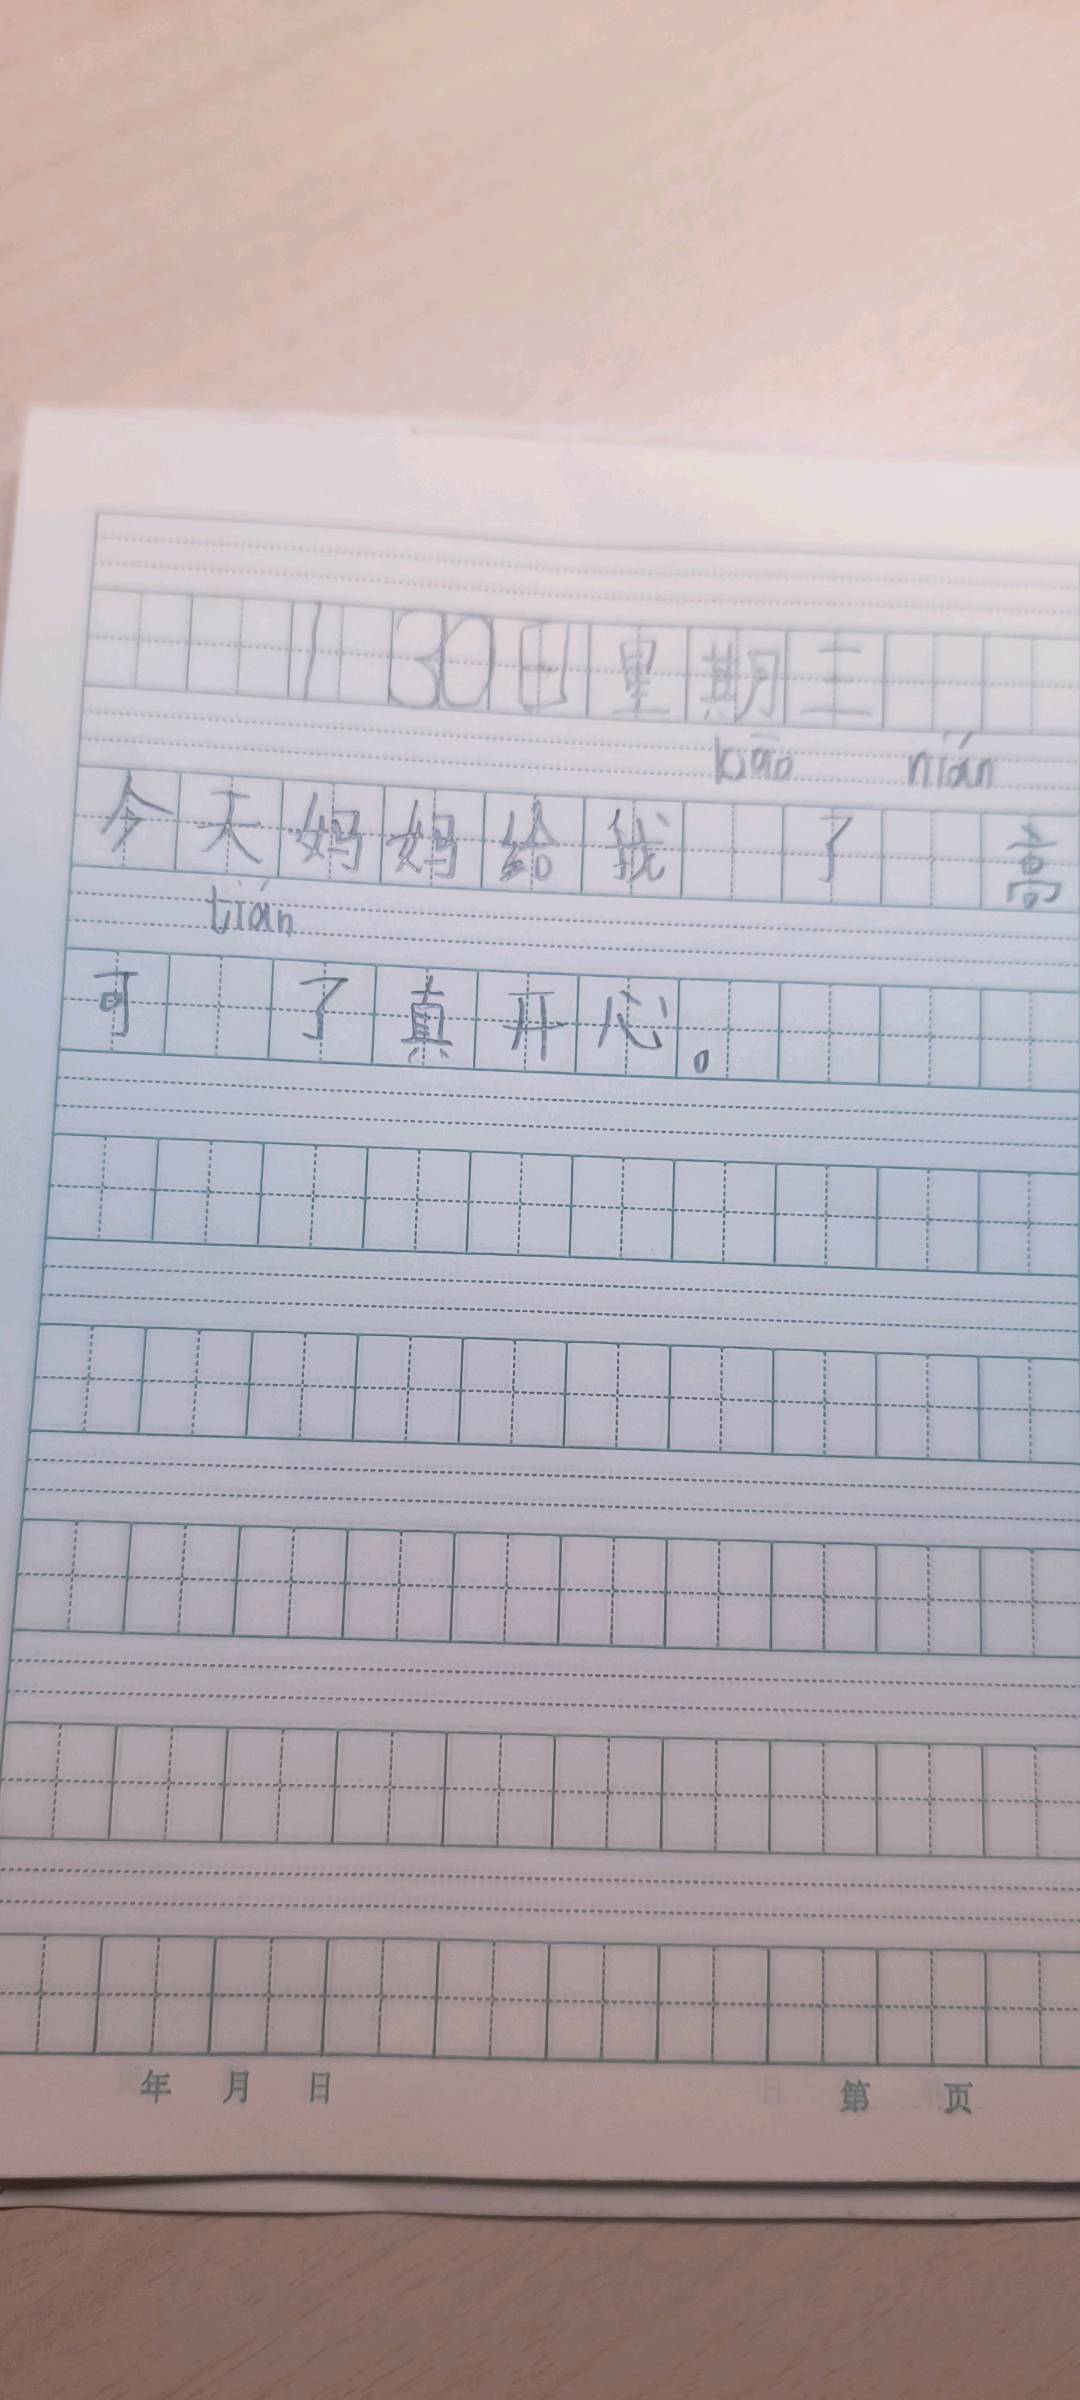 1 30日星期三
kǎo nián
今天妈妈给我 了 高
tián
可 了真开心。
年 月 日 第 页